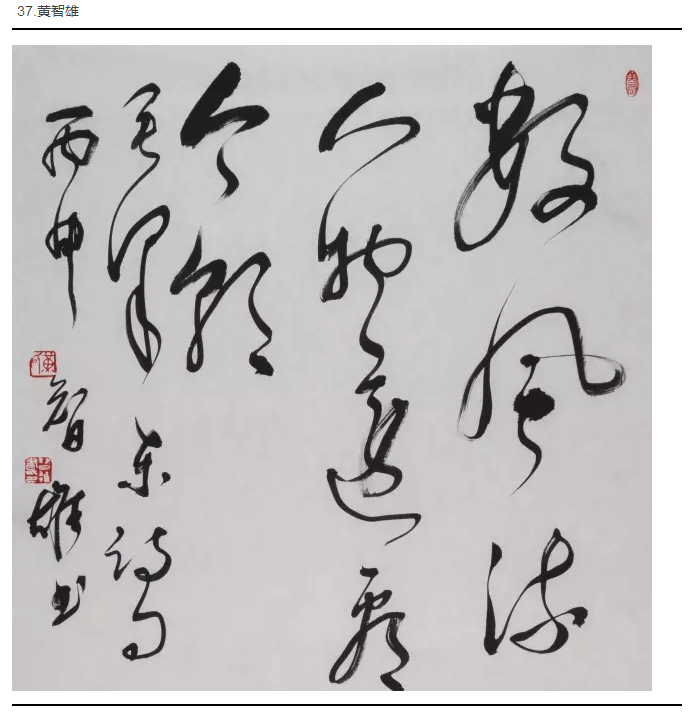 37.黄智雄
数风流
人物还看
今朝
毛泽东诗句
丙申智雄书